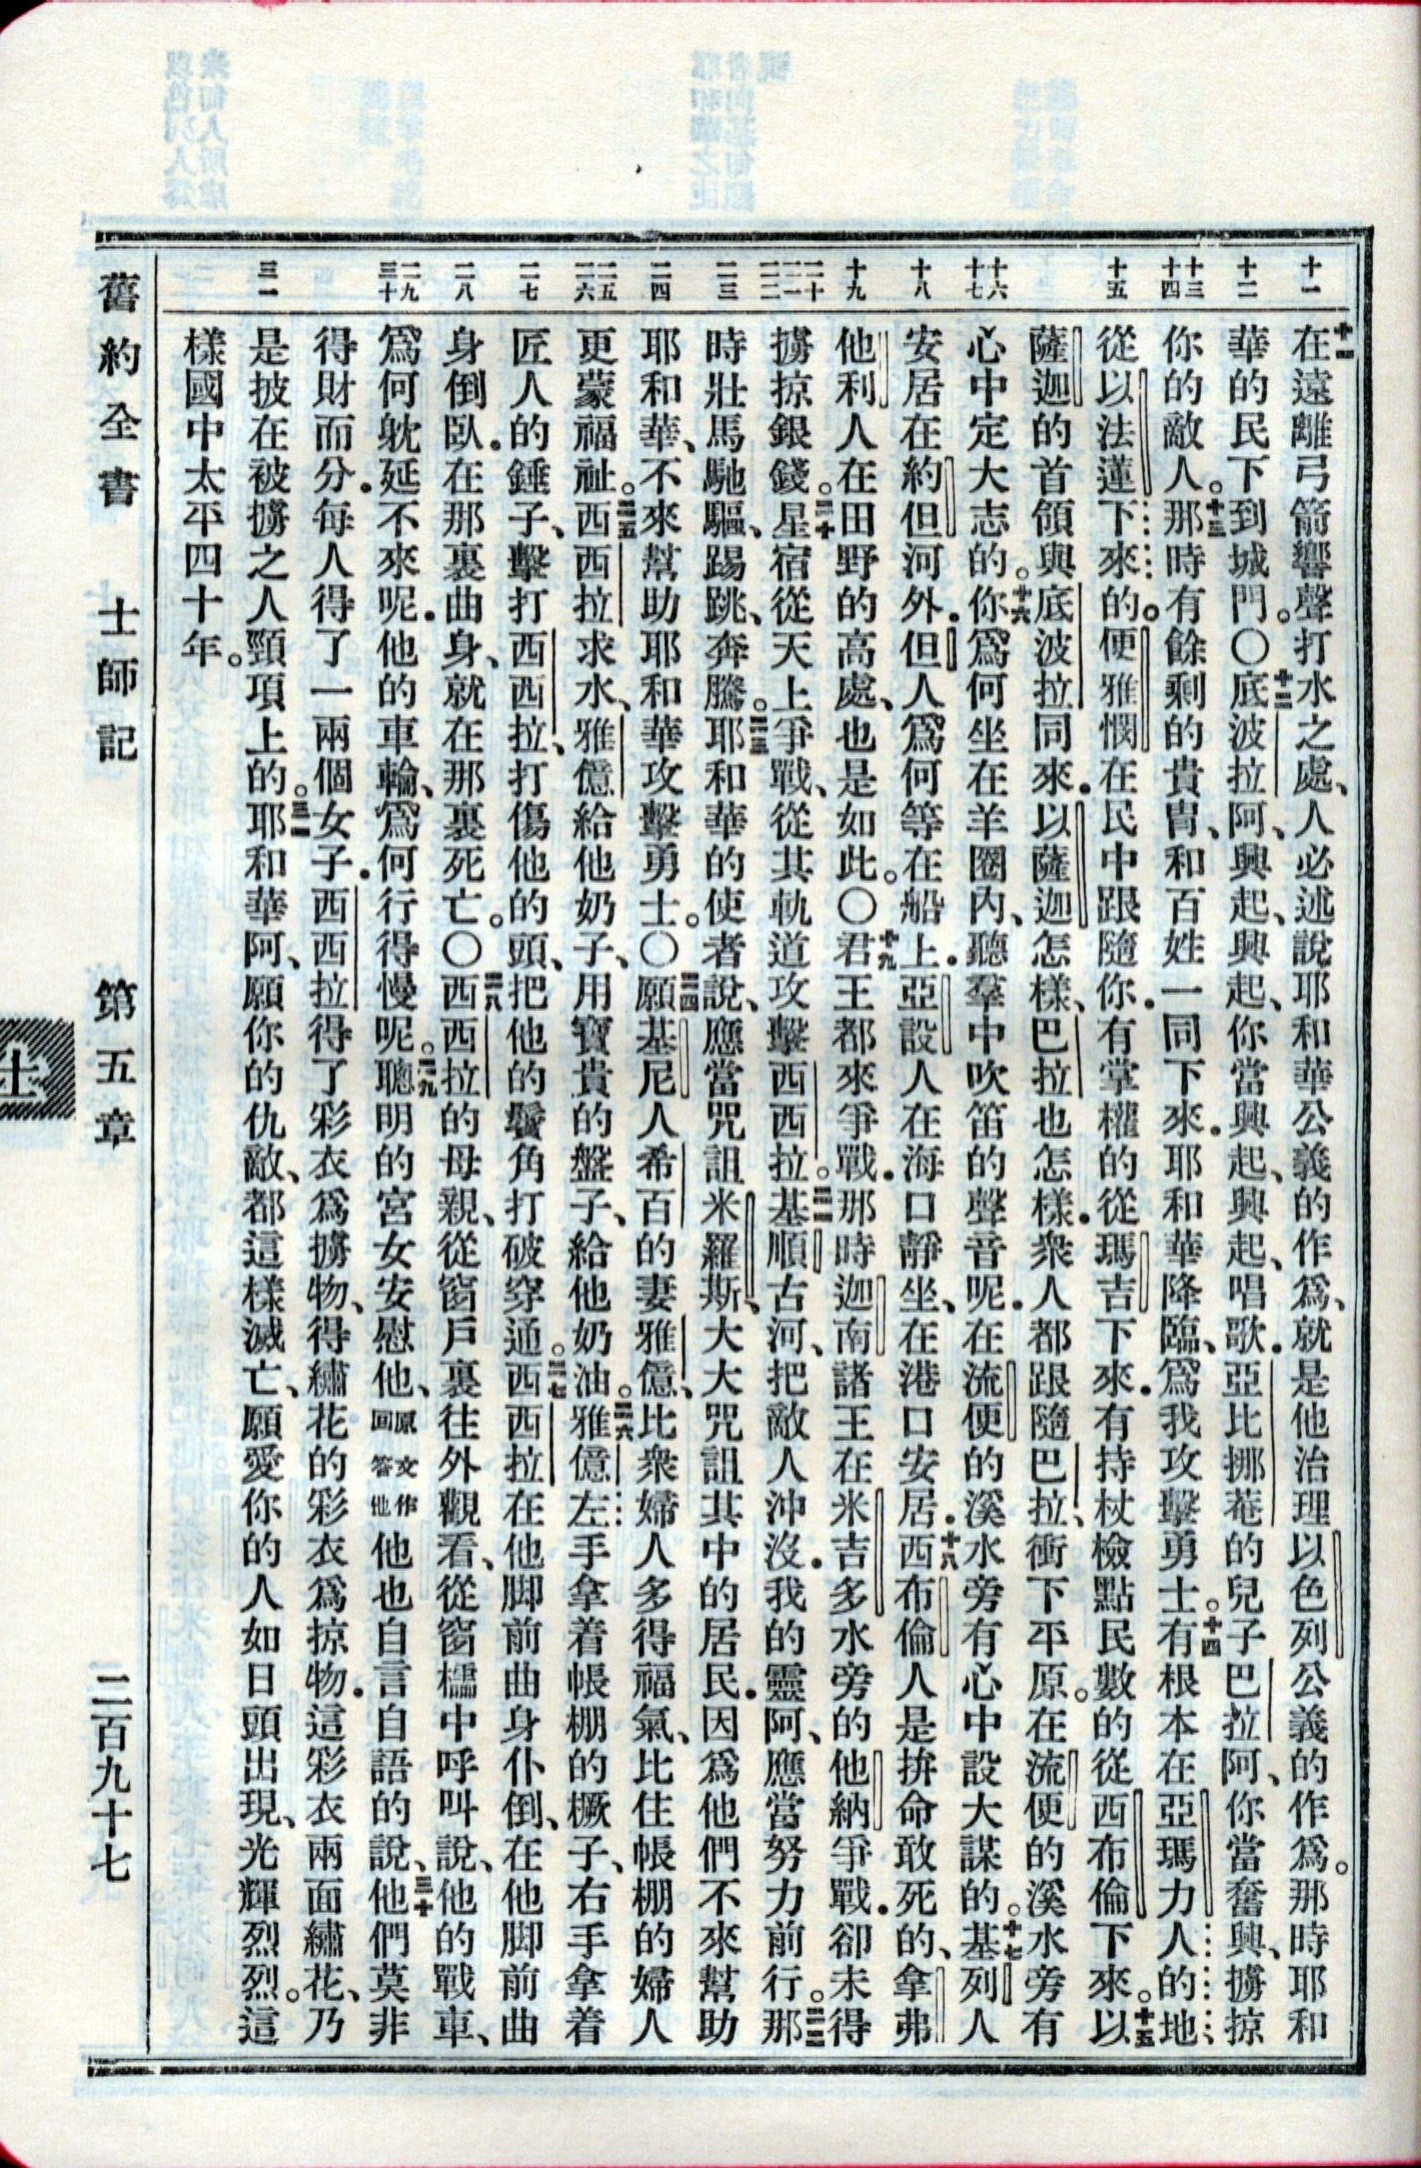 十一
十二
十三
十四
十五
十六
十七
十八
十九
二十
二一
二二
二三
二四
二五
二六
二七
二八
二九
三十
三一
十一在遠離弓箭響聲打水之處、人必述說耶和華公義的作爲、就是他治理以色列公義的作爲。那時耶和
華的民下到城門。〇十二底波拉阿、興起、興起、你當興起、興起、唱歌．亞比挪菴的兒子巴拉阿、你當奮興、擄掠
你的敵人。十三那時有餘剩的貴冑、和百姓一同下來．耶和華降臨、爲我攻擊勇士。十四有根本在亞瑪力人的地、
從以法蓮下來的．便雅憫在民中跟隨你．有掌權的從瑪吉下來．有持杖檢點民數的從西布倫下來。十五以
薩迦的首領與底波拉同來．以薩迦怎樣、巴拉也怎樣．衆人都跟隨巴拉、衝下平原。在流便的溪水旁有
心中定大志的。十六你爲何坐在羊圈內、聽羣中吹笛的聲音呢．在流便的溪水旁有心中設大謀的。十七基列人
安居在約但河外．但人爲何等在船上．亞設人在海口靜坐、在港口安居．十八西布倫人是拚命敢死的、拿弗
他利人在田野的高處、也是如此。〇十九君王都來爭戰．那時迦南諸王在米吉多水旁的他納爭戰．卻未得
擄掠銀錢。二十星宿從天上爭戰、從其軌道攻擊西西拉。二一基順古河、把敵人沖沒．我的靈阿、應當努力前行。二二那
時壯馬馳驅、踢跳、奔騰。二三耶和華的使者說、應當咒詛米羅斯、大大咒詛其中的居民．因爲他們不來幫助
耶和華、不來幫助耶和華攻擊勇士。〇二四願基尼人希百的妻雅億、比衆婦人多得福氣、比住帳棚的婦人
更蒙福祉。二五西西拉求水、雅億給他奶子、用寶貴的盤子、給他奶油。二六雅億左手拿着帳棚的橛子、右手拿着
匠人的錘子、擊打西西拉、打傷他的頭、把他的鬢角打破穿通。二七西西拉在他脚前曲身仆倒、在他脚前曲
身倒臥．在那裏曲身、就在那裏死亡。〇二八西西拉的母親、從窗戶裏往外觀看、從窗櫺中呼叫說、他的戰車、
爲何躭延不來呢．他的車輪、爲何行得慢呢。二九聰明的宮女安慰他、原文作回答他他也自言自語的說、三十他們莫非
得財而分．每人得了一兩個女子．西西拉得了彩衣爲擄物、得繡花的彩衣爲掠物．這彩衣兩面繡花、乃
是披在被擄之人頸項上的。三一耶和華阿、願你的仇敵、都這樣滅亡、願愛你的人如日頭出現、光輝烈烈。這
樣國中太平四十年。
舊約全書　士師記　第五章　二百九十七
士